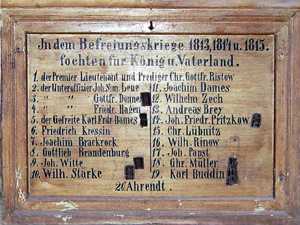 In dem Befreiungskriege 1813, 1814 u. 1815.
fochten für König u. Vaterland.
1. der Premier Lieutenant und Prediger Chr. Gottfr. Bistow
2. der Unteroffizier Joh. Sim. Leue
3. " " Gottfr. Donner
4. " " Friedr. Hagen
5. der Gefreite Karl Fridr. Dames
6. Friedrich Kressin
7. Joachim Brackrock
8. Gottlieb Brandenburg
9. Joh. Witte
10. Wilh. Stärke
11. Joachim Dames
12. Wilhelm Zech
13. Andreas Brey
14. Joh. Friedr. Pritzkow
15. Chr. Lübnitz
16. Wilh. Rinow
17. Joh. Papst
18. Chr. Müller
19. Karl Buddin
20 Ahrendt.